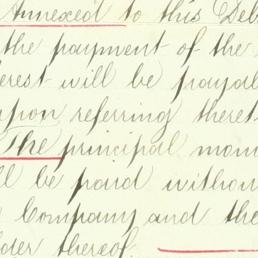 Annexed to this Deb
the payment of the
erest will be payab
upon referring theret
The principal mon
ll be paid withou
Company and the
lder thereof.